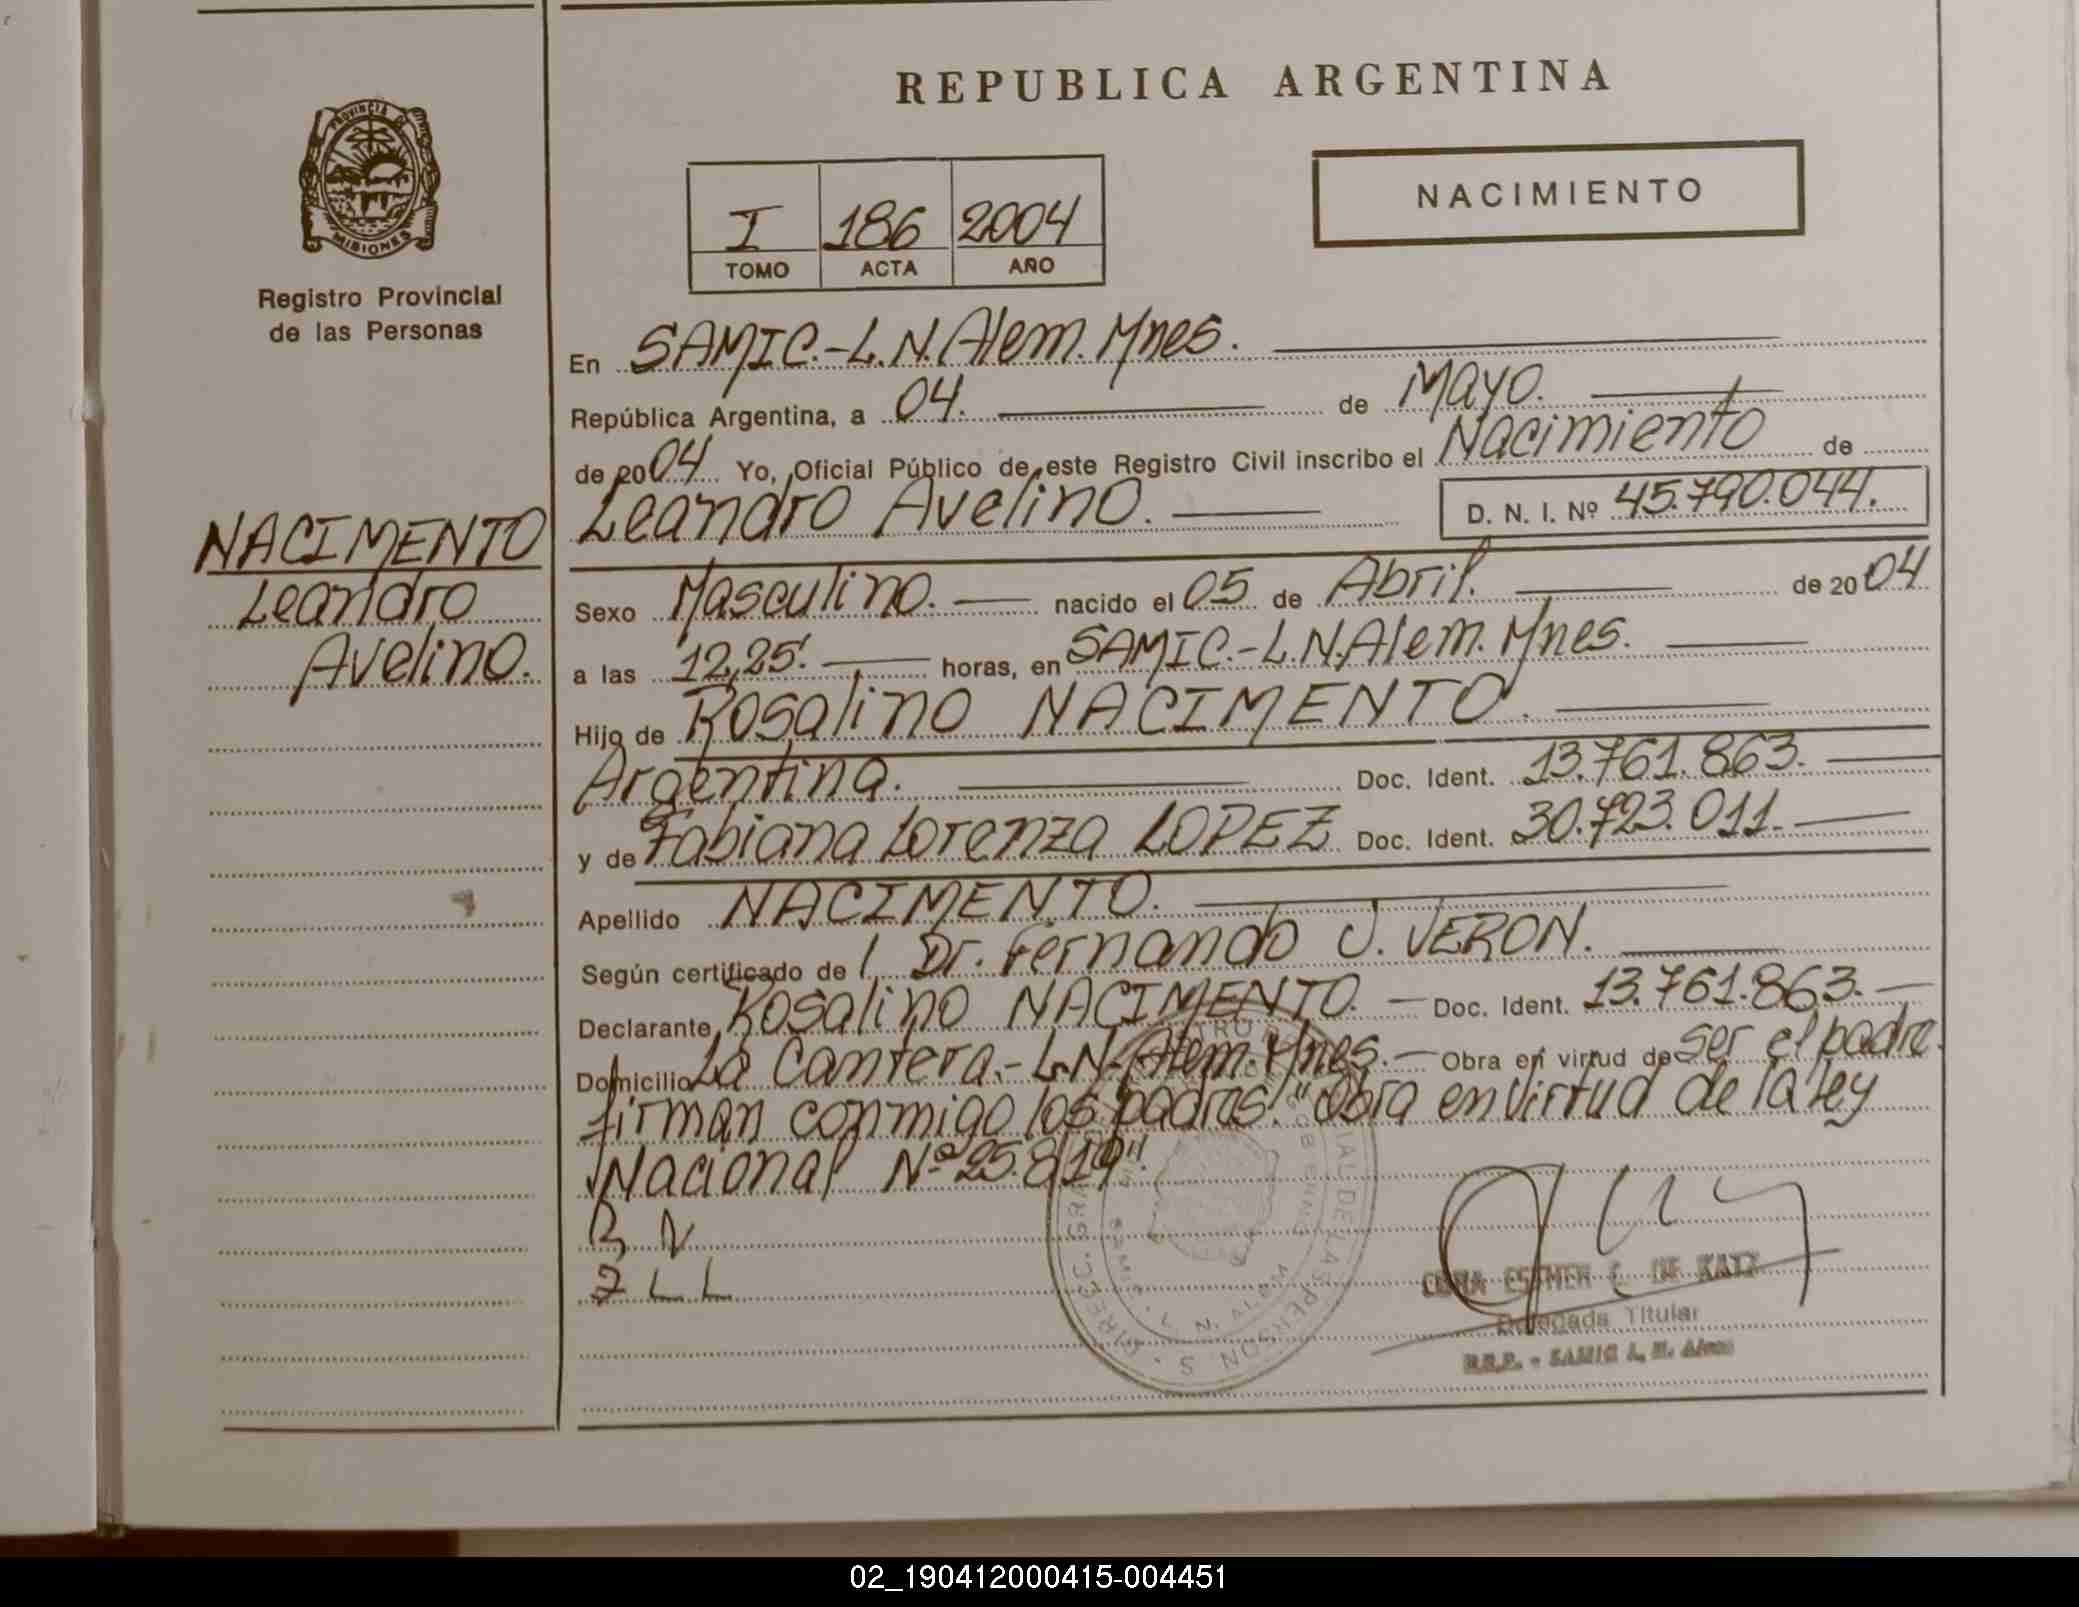 REPUBLICA ARGENTINA
PROVINCIA DE
MISIONES
Registro Provincial
de las Personas
NACIMIENTO
I 186 2004
TOMO ACTA AÑO
En SAMIC.-L.N.Alem.Mnes.
República Argentina, a 04. de Mayo.
de 2004 Yo, Oficial Público de este Registro Civil inscribo el Nacimiento de
Leandro Avelino. D. N. I. Nº 45.790.044.
NACIMENTO
Leandro
Avelino.
Sexo Masculino. nacido el 05 de Abril. de 2004
a las 12,25'. horas, en SAMIC.-L.N.Alem.Mnes.
Hijo de Rosalino NACIMENTO.
Argentina. Doc. Ident. 13.761.863.
y de Fabiana Lorenza LOPEZ Doc. Ident. 30.723.011.
Apellido NACIMENTO.
Según certificado de Dr. Fernando J. VERON.
Declarante Rosalino NACIMENTO. Doc. Ident. 13.761.863.
Domicilio La Cantera.-L.N.Alem.Mnes. Obra en virtud de ser el padre.
firman conmigo los padres. "Obra en virtud de la ley
Nacional Nº 25.819".
R N
F L L
ESTHER DE KATZ
Delegada Titular
R.P.P. - SAMIC L. N. Alem
02_190412000415-004451